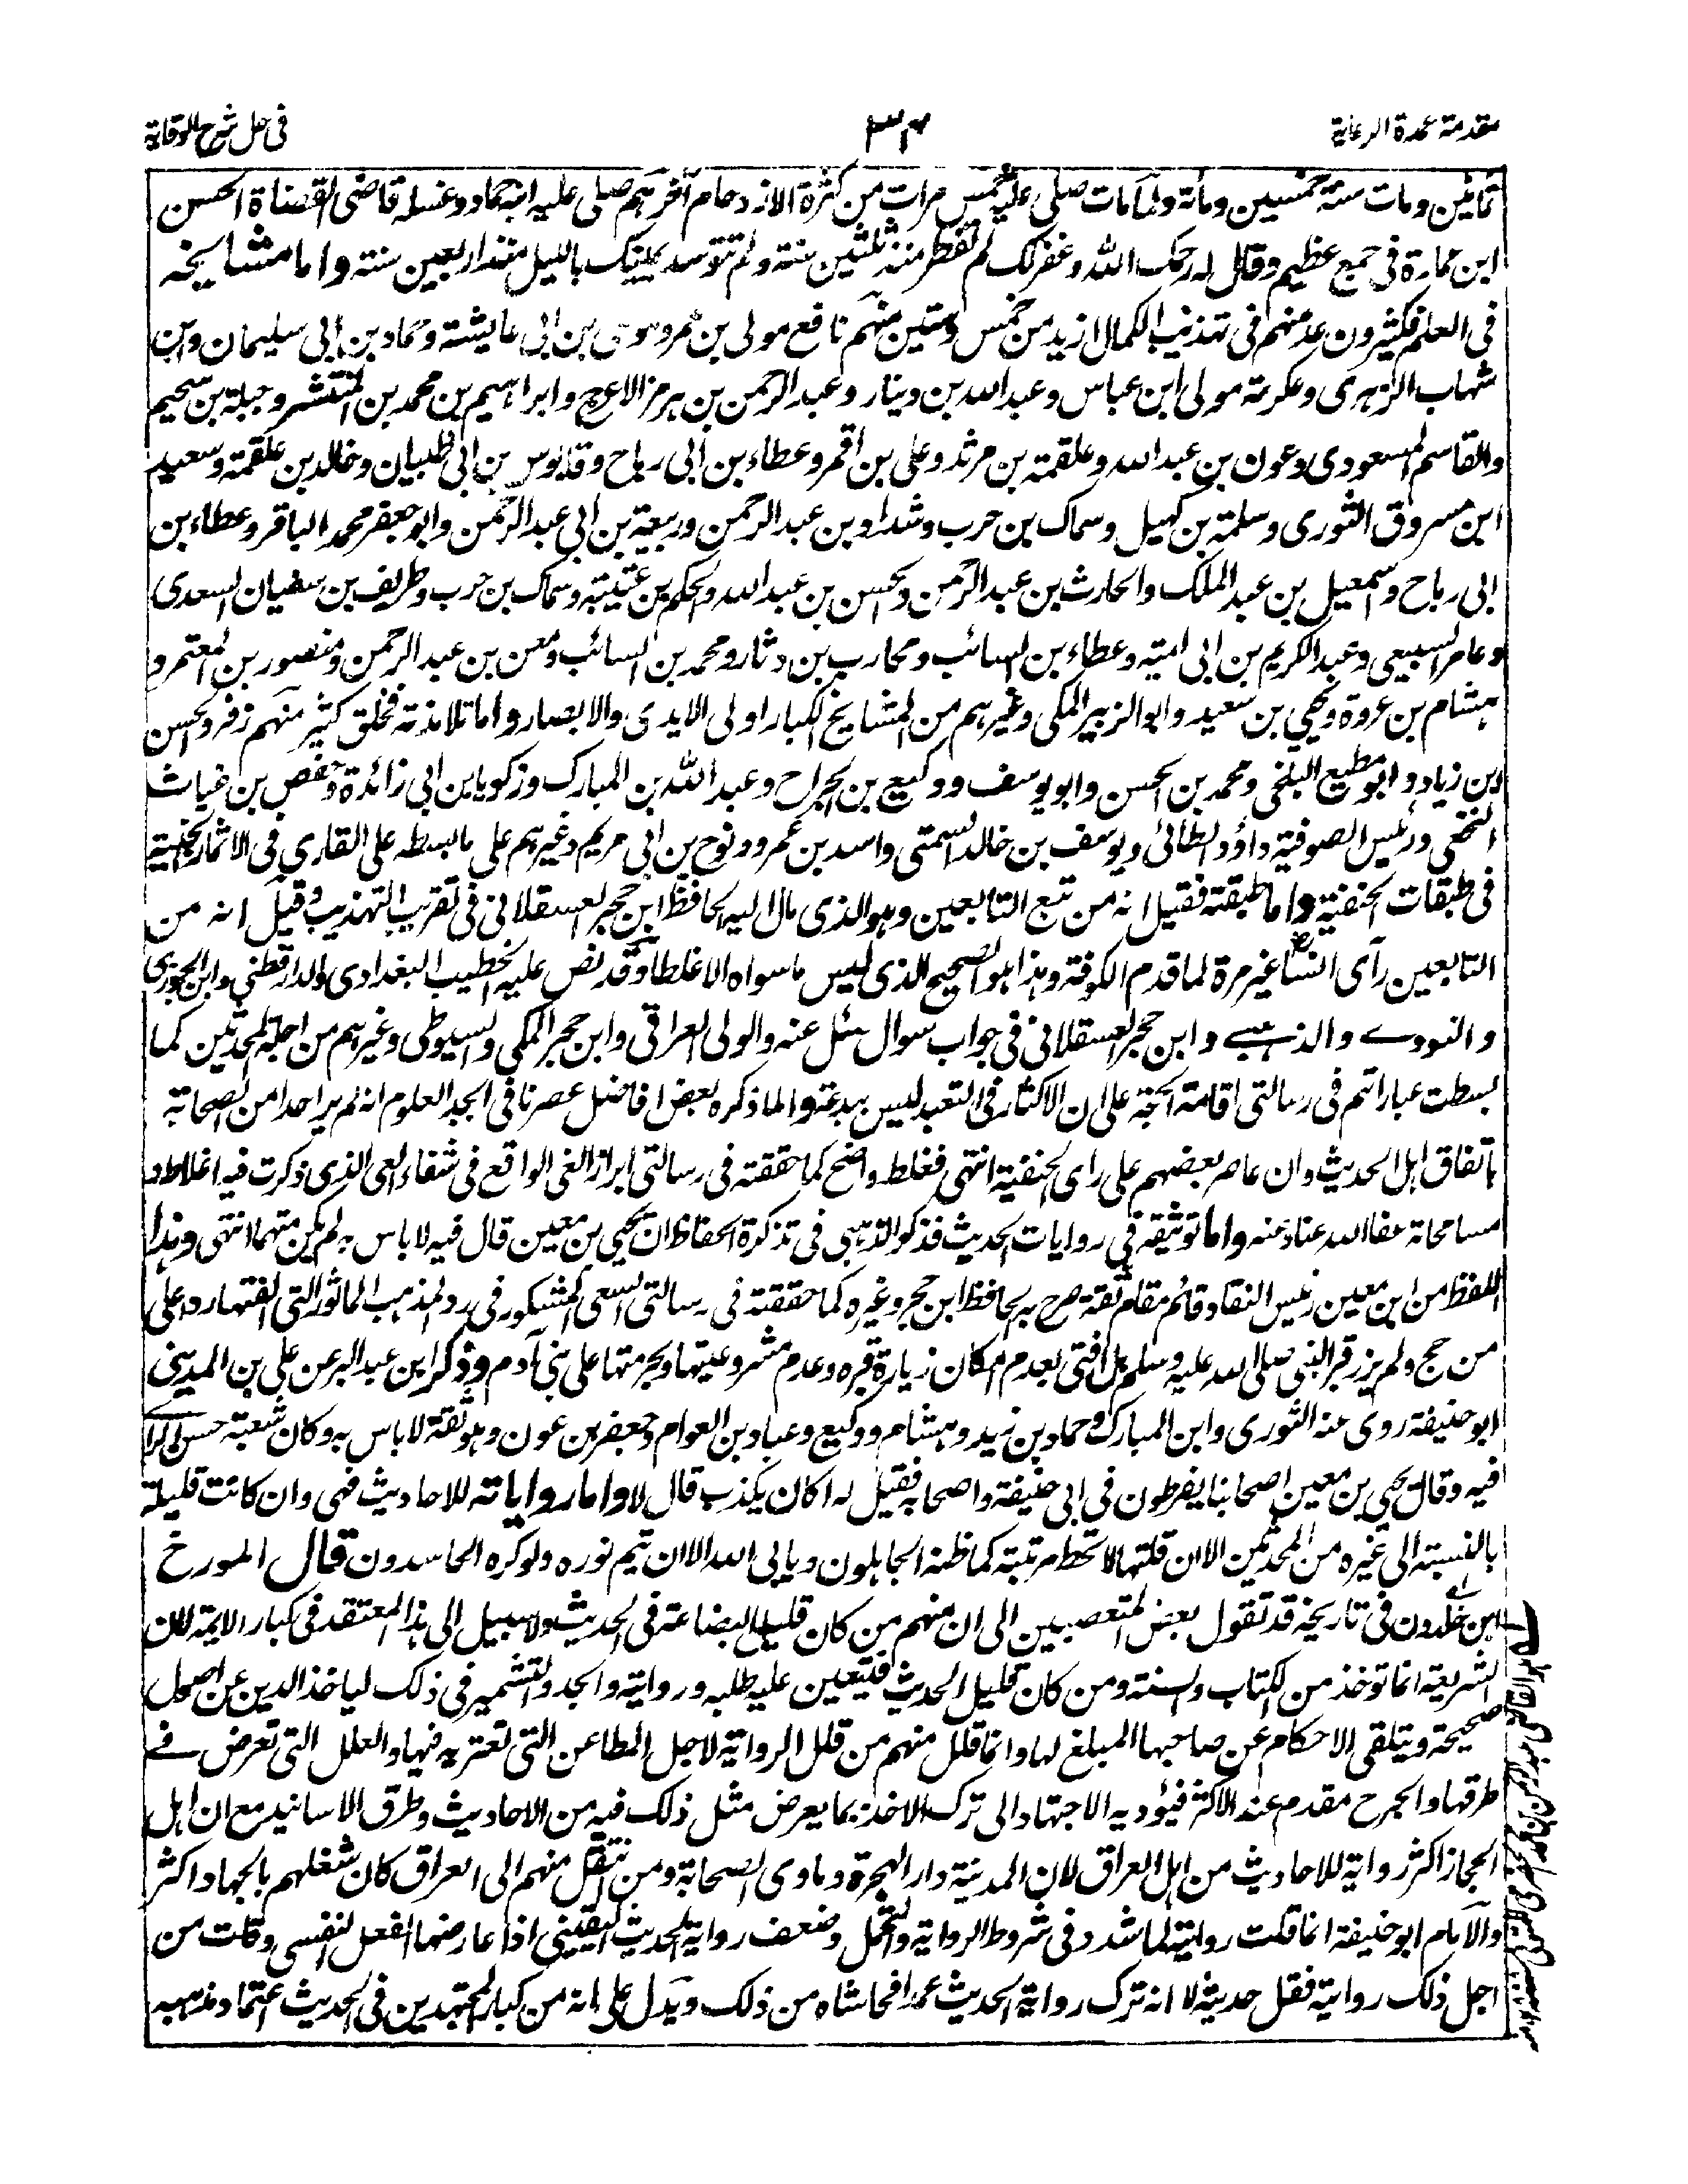 مقدمة عمدة الرعاية
٣٤
في حل شرح الوقاية
ثمانين ومات سنة خمسين ومأة ولما مات صلى عليه خمس مرات من كثرة الازدحام آخرهم صلى عليه ابنه حماد وغسله قاضى القضاة الحسن
ابن عمارة فى جمع عظيم وقال له رحمك الله وغفر لك لم تفطر منذ ثلثين سنة ولم تتوسد يمينك بالليل منذ اربعين سنة واما مشايخه
فى العلم فكثيرون عد منهم فى تهذيب الكمال ازيد من خمس وستين منهم نافع مولى بن عمر وموسى بن ابى عايشة وحماد بن ابى سليمان وابن
شهاب الزهرى وعكرمة مولى ابن عباس وعبد الله بن دينار وعبد الرحمن بن هرمز الاعرج وابراهيم بن محمد بن المنتشر وجبلة بن سحيم
والقاسم المسعودى وعون بن عبد الله وعلقمة بن مرثد وعلى بن اقمر وعطاء بن ابى رباح وقابوس بن ابى ظبيان وخالد بن علقمة وسعيد
ابن مسروق الثورى وسلمة بن كهيل وسماك بن حرب وشداد بن عبد الرحمن وربيعة بن ابى عبد الرحمن وابو جعفر محمد الباقر وعطاء بن
ابى رباح واسمعيل بن عبد الملك والحارث بن عبد الرحمن والحسن بن عبد الله والحكم بن عتيبة وسماك بن حرب وطريف بن سفيان السعدى
وعامر السبيعى وعبد الكريم بن ابى امية وعطاء بن السائب ومحارب بن دثار ومحمد بن السائب ومعن بن عبد الرحمن ومنصور بن المعتمر و
هشام بن عروة ويحيى بن سعيد وابو الزبير المكى وغيرهم من المشايخ الكبار اولى الايدى والابصار واما تلامذته فخلق كثير منهم زفر والحسن
ابن زياد وابو مطيع البلخى ومحمد بن الحسن وابو يوسف ووكيع بن الجراح وعبد الله بن المبارك وزكريا بن ابى زائدة وحفص بن غياث
النخعى ورئيس الصوفية داؤد الطائى ويوسف بن خالد السمتى واسد بن عمرو ونوح بن ابى مريم وغيرهم على ما بسطه على القارى فى الاثمار الجنية
فى طبقات الحنفية واما طبقته فقيل انه من تبع التابعين وهو الذى مال اليه الحافظ ابن حجر العسقلانى فى تقريب التهذيب وقيل انه من
التابعين رأى انسا غير مرة لما قدم الكوفة وهذا هو الصحيح الذى ليس ما سواه الا غلطا وقد نص عليه الخطيب البغدادى والدارقطنى وابن الجوزى
والنووى والذهبى وابن حجر العسقلانى فى جواب سوال سئل عنه والولى العراقى وابن حجر المكى والسيوطى وغيرهم من اجلة المحدثين كما
بسطت عباراتهم فى رسالتى اقامة الحجة على ان الاكثار فى التعبد ليس ببدعة واما ما ذكره بعض افاضل عصرنا فى ابجد العلوم انه لم ير احدا من الصحابة
باتفاق اهل الحديث وان عاصر بعضهم على راى الحنفية انتهى فغلط واضح كما حققته فى رسالتى ابراز الغى الواقع فى شفاء العى الذى ذكرت فيه اغلاطه و
مسامحاته عفا الله عنا وعنه واما توثيقه فى روايات الحديث فذكر الذهبى فى تذكرة الحفاظ ان يحيى بن معين قال فيه لا باس به لم يكن متهما انتهى وهذا
اللفظ من ابن معين رئيس النقاد قائم مقام ثقة صرح به الحافظ ابن حجر وغيره كما حققته فى رسالتى السعى المشكور فى رد المذهب الماثور التى الفتها ردا على
من حج ولم يزر قبر النبى صلى الله عليه وسلم بل افتى بعدم امكان زيارة قبره وعدم مشروعيتها وبحرمتها على بنى آدم وذكر ابن عبد البر عن على بن المدينى
ابو حنيفة روى عنه الثورى وابن المبارك وحماد بن زيد وهشام ووكيع وعباد بن العوام وجعفر بن عون وهو ثقة لا باس به وكان شعبة حسن الراى
فيه وقال يحيى بن معين اصحابنا يفرطون فى ابى حنيفة واصحابه فقيل له اكان يكذب قال لا واما رواياته للاحاديث فهى وان كانت قليلة
بالنسبة الى غيره من المحدثين الا ان قلتها لا تحط مرتبة كما ظنه الجاهلون ويابى الله الا ان يتم نوره ولو كره الحاسدون قال المورخ
ابن خلدون فى تاريخه قد تقول بعض المتعصبين الى ان منهم من كان قليل البضاعة فى الحديث ولا سبيل الى هذا المعتقد فى كبار الايمة لان
الشريعة انما توخذ من الكتاب والسنة ومن كان قليل الحديث فيتعين عليه طلبه وروايته والجد والتشمير فى ذلك لياخذ الدين عن اصول
صحيحة ويتلقى الاحكام عن صاحبها المبلغ لها وانما قلل منهم من قلل الرواية لاجل المطاعن التى تعتريه فيها والعلل التى تعرض فى
طرقها والجرح مقدم عند الاكثر فيؤديه الاجتهاد الى ترك الاخذ بما يعرض مثل ذلك فيه من الاحاديث وطرق الاسانيد مع ان اهل
الحجاز اكثر رواية للاحاديث من اهل العراق لان المدينة دار الهجرة وماوى الصحابة ومن انتقل منهم الى العراق كان شغلهم بالجهاد اكثر
والامام ابو حنيفة انما قلت روايته لما شدد فى شروط الرواية والتحمل وضعف رواية الحديث اليقينى اذا عارضها الفعل النفسى وقلت من
اجل ذلك روايته فقل حديثه لا انه ترك رواية الحديث عمدا فحاشاه من ذلك ويدل على انه من كبار المجتهدين فى الحديث اعتماد مذهبه